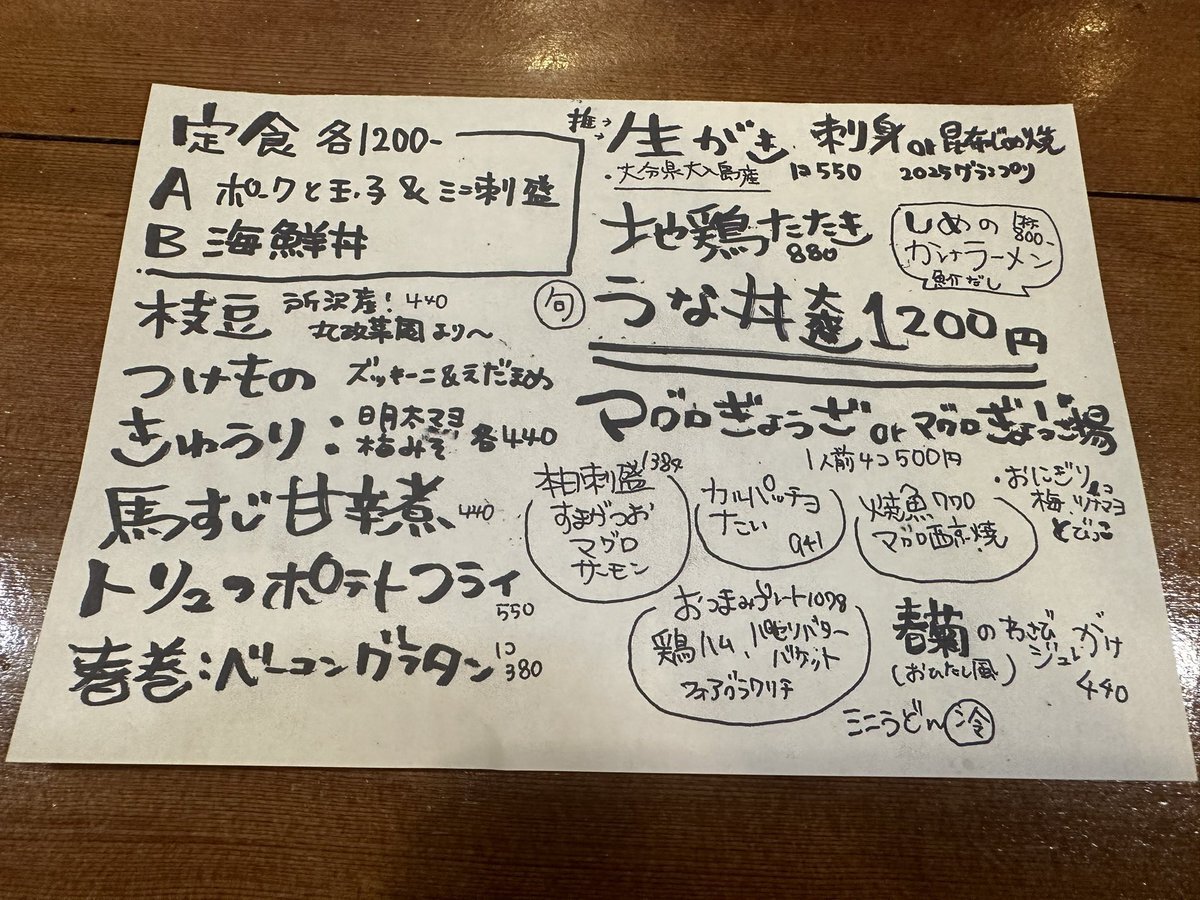 定食 各1200-
A ポークと玉子&ミニ刺盛
B 海鮮丼
枝豆 所沢産! 440
より〜
つけもの ズッキーニ&えだまめ
きゅうり: 明太マヨ
梅みそ 各440
馬すじ甘辛煮 440
トリュフポテトフライ
550
春巻:ベーコングラタン 1コ
380
推→ 生がき 刺身 or 昆布じめ焼
・大分県大入島産 1コ550 2025グランプリ
地鶏たたき
880
しめの
800-
かけラーメン
魚介だし
旬
うな丼 1200円
マグロぎょうざ or マグロぎょうざ揚
1人前4コ500円
刺盛
すまがつお
マグロ
サーモン
カルパッチョ
たい
941
焼魚
マグロ西京焼
・おにぎり
梅、ツナマヨ
とびっこ
おつまみプレート1078
鶏ハム、パセリバター
バケット
フォアグラクリチ
春菊のわさび
ジュレがけ
(おひたし風)
440
ミニうどん 冷